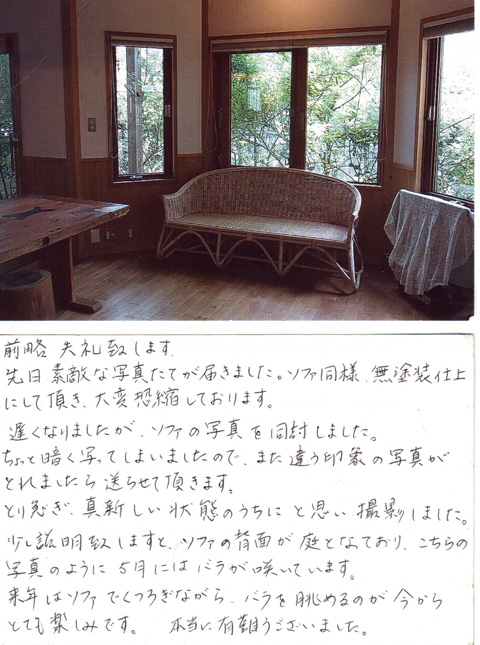 前略 失礼致します.
先日素敵な写真たてが届きました。ソファ同様、無塗装仕上
にして頂き、大変恐縮しております。
遅くなりましたが、ソファの写真を同封しました。
ちょっと暗く写ってしまいましたので、また違う印象の写真が
とれましたら送らせて頂きます。
とり急ぎ、真新しい状態のうちにと思い撮影しました。
少し説明致しますと、ソファの背面が庭となっており、こちらの
写真のように5月にはバラが咲いています。
来年はソファでくつろぎながら、バラを眺めるのが今から
とても楽しみです。 本当に有難うございました。